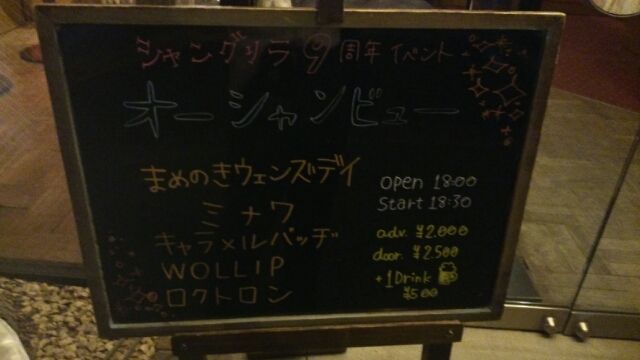 シャングリラ9周年イベント
オーシャンビュー
まめのきウェンズデイ
ミナワ
キャラメルパッヂ
WOLLIP
ロクトロン
open 18:00
Start 18:30
adv. ¥2.000
door. ¥2.500
+1Drink
¥500